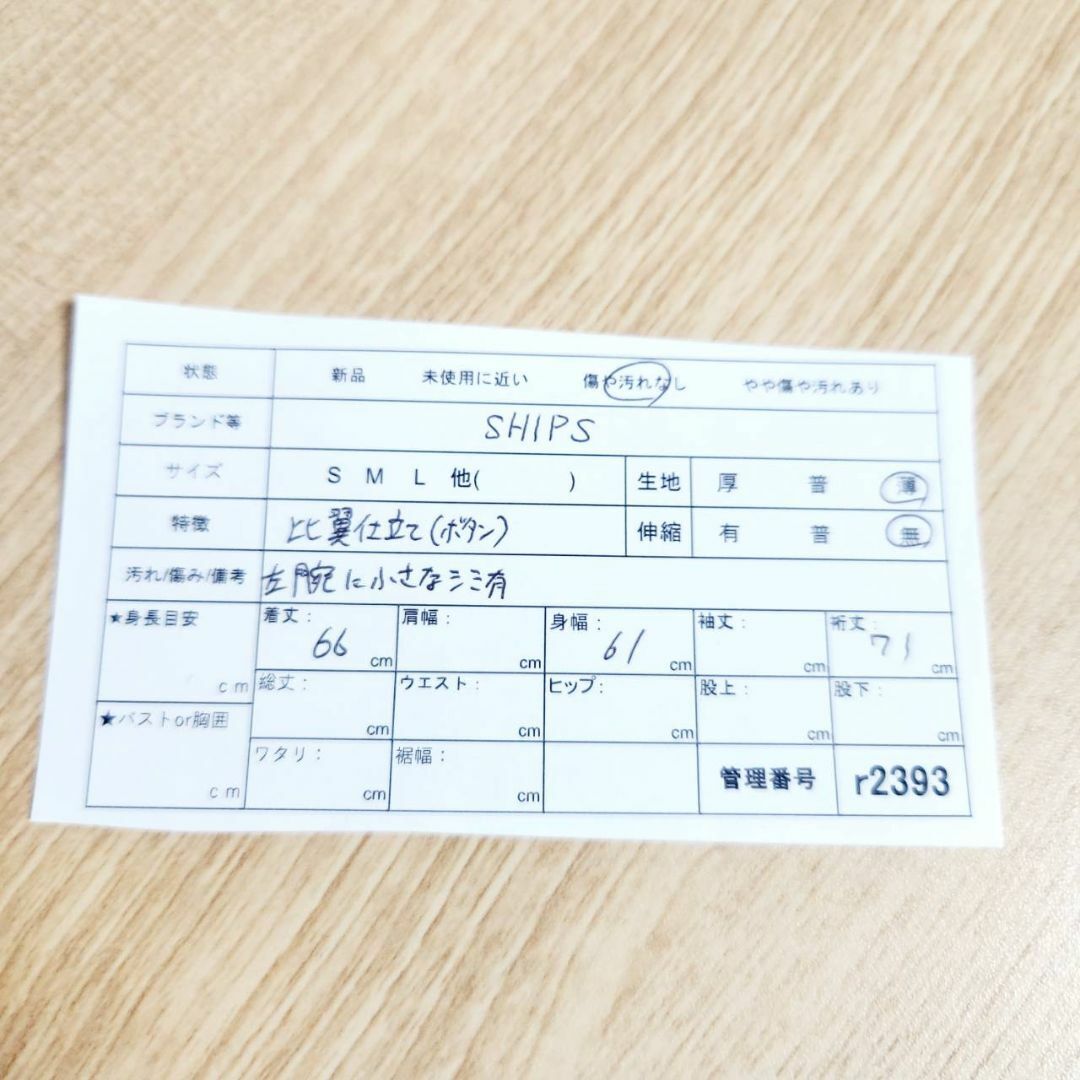 状態 新品 未使用に近い 傷や汚れなし やや傷や汚れあり
ブランド等 SHIPS
サイズ S M L 他( ) 生地 厚 普 薄
特徴 比翼仕立て(ボタン) 伸縮 有 普 無
汚れ/傷み/備考 左腕に小さなシミ有
★身長目安 cm 着丈: 66 cm 肩幅: cm 身幅: 61 cm 袖丈: cm 裄丈: 71 cm
総丈: cm ウエスト: cm ヒップ: cm 股上: cm 股下: cm
★バストor胸囲 cm ワタリ: cm 裾幅: cm 管理番号 r2393